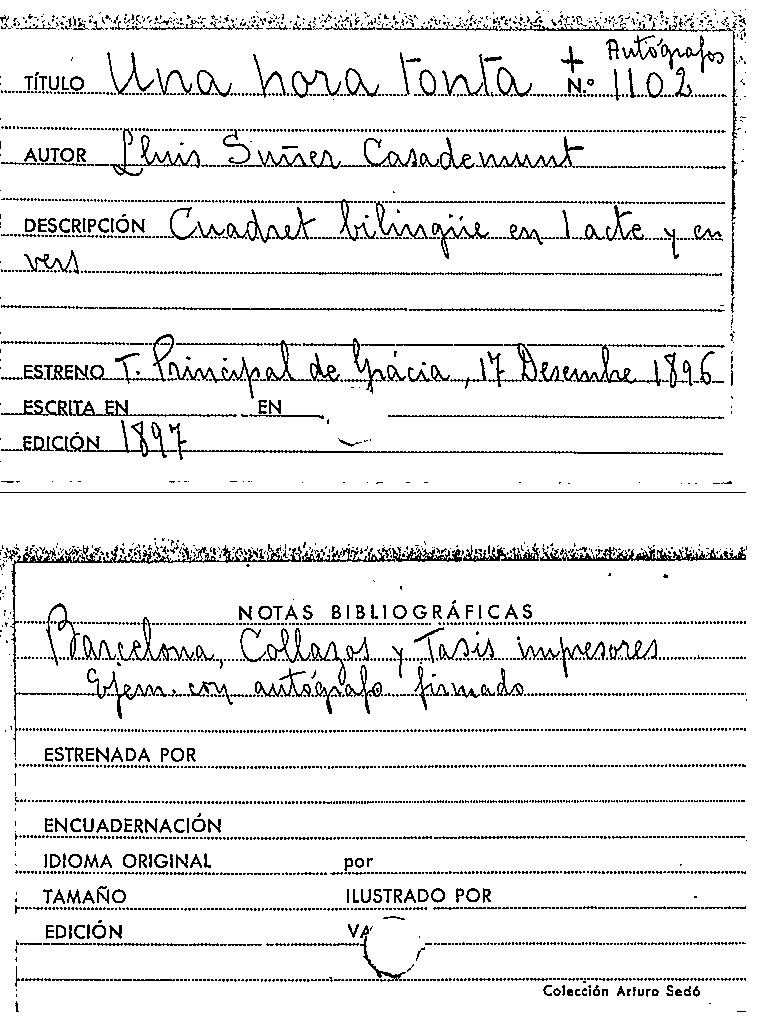 + Autógrafos
TÍTULO Una hora tonta N.º 1102
AUTOR Lluis Suñer Casademunt
DESCRIPCIÓN Cuadret bilingüe en 1 acte y en
vers
ESTRENO T. Principal de Gràcia, 17 Desembre 1896
ESCRITA EN EN
EDICIÓN 1897
NOTAS BIBLIOGRÁFICAS
Barcelona, Collazos y Tasis impresores
Ejem. con autógrafo firmado
ESTRENADA POR
ENCUADERNACIÓN
IDIOMA ORIGINAL por
TAMAÑO ILUSTRADO POR
EDICIÓN
Colección Arturo Sedó